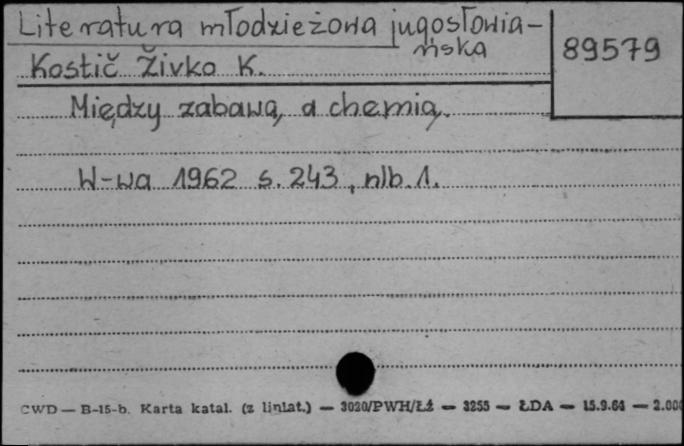 Literatura młodzieżowa jugosłowia-
ńska
89579
Kostič Živko K.
Między zabawą, a chemią.
W-wa 1962 s. 243, nlb. 1.
CWD — B-15-b. Karta katal. (z liniat.) — 3020/PWH/Łż — 3255 — ŁDA — 15.9.64 — 2.000